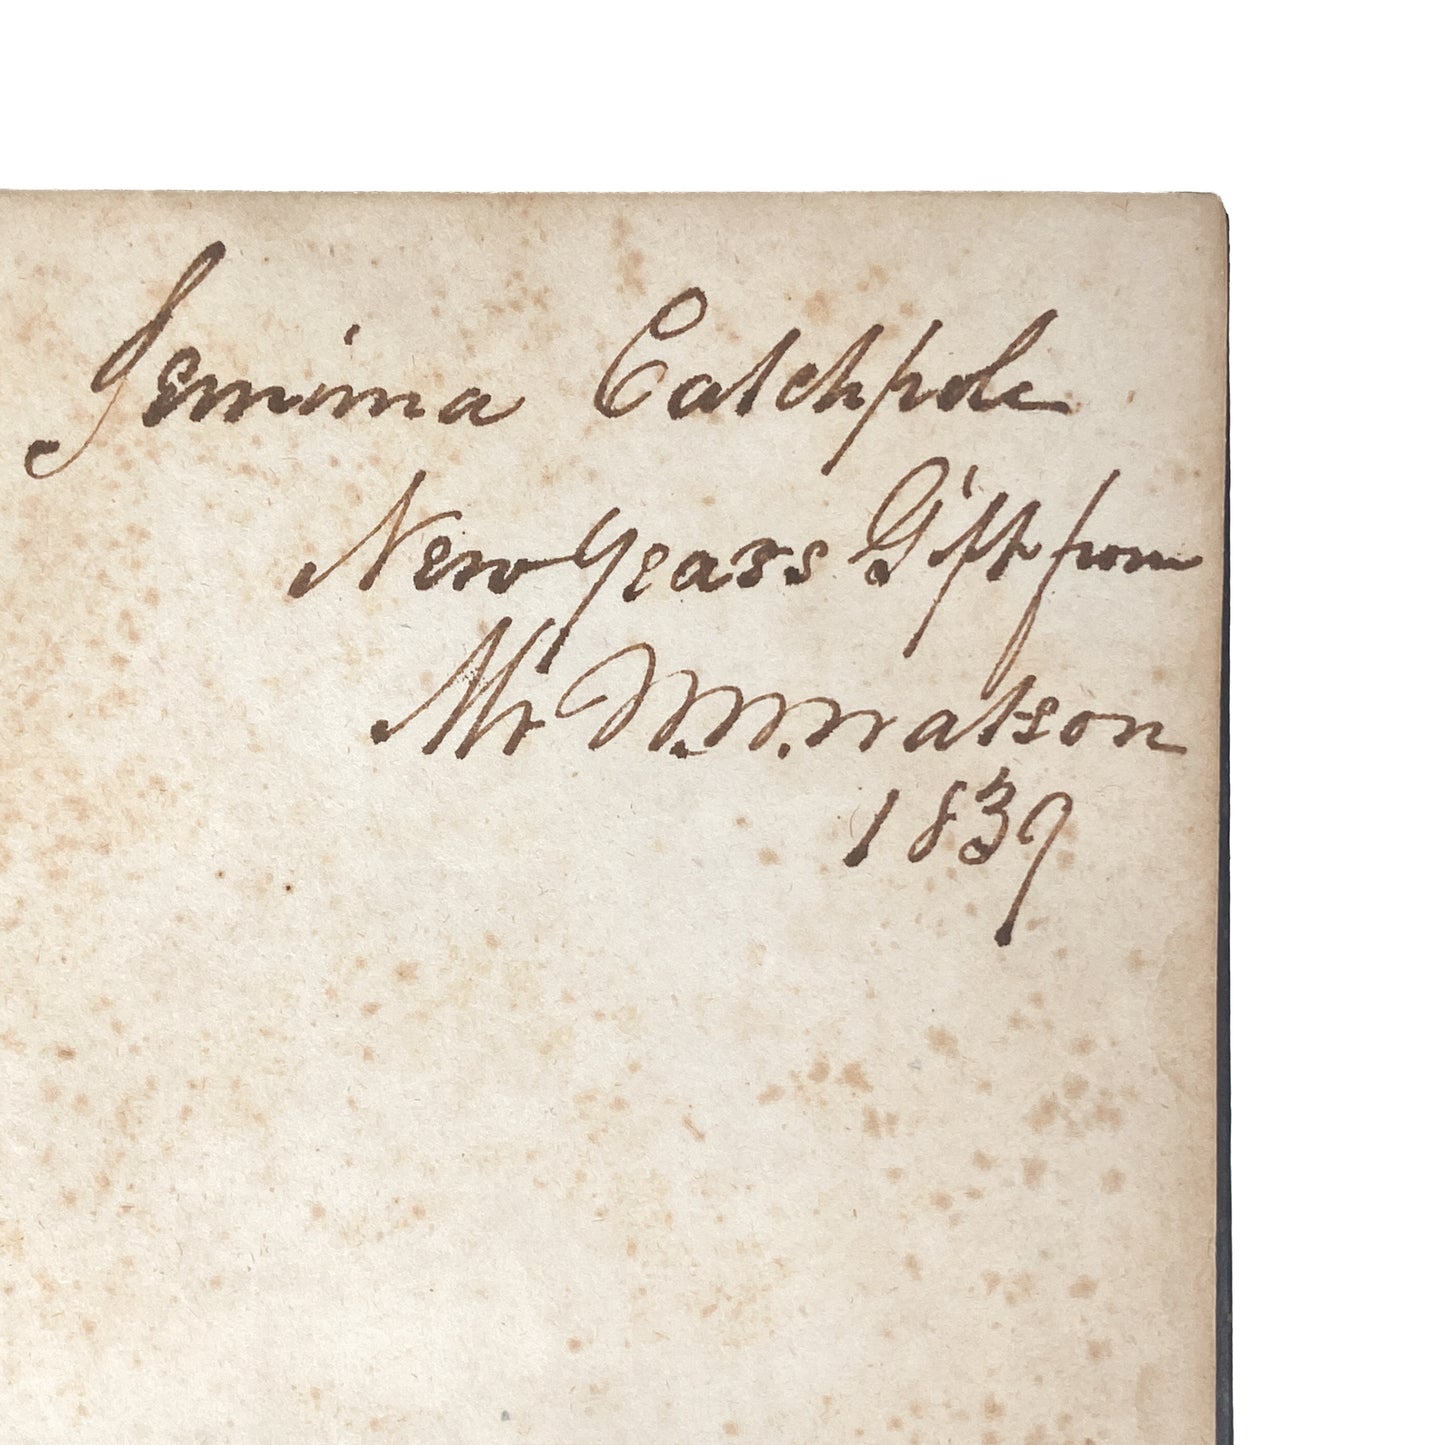 Jemima Catchpole
New Years Gift from
Mr W. W. Watson
1839